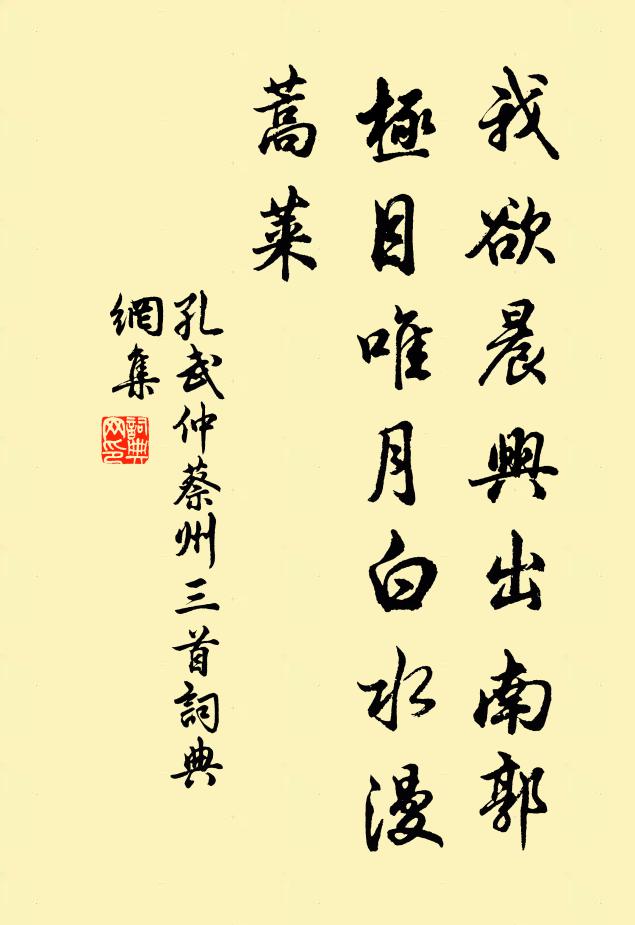 我欲晨興出南郭
極目唯月白水漫
蒿萊
孔武仲蔡州三首詞典
網集
詞典
网印